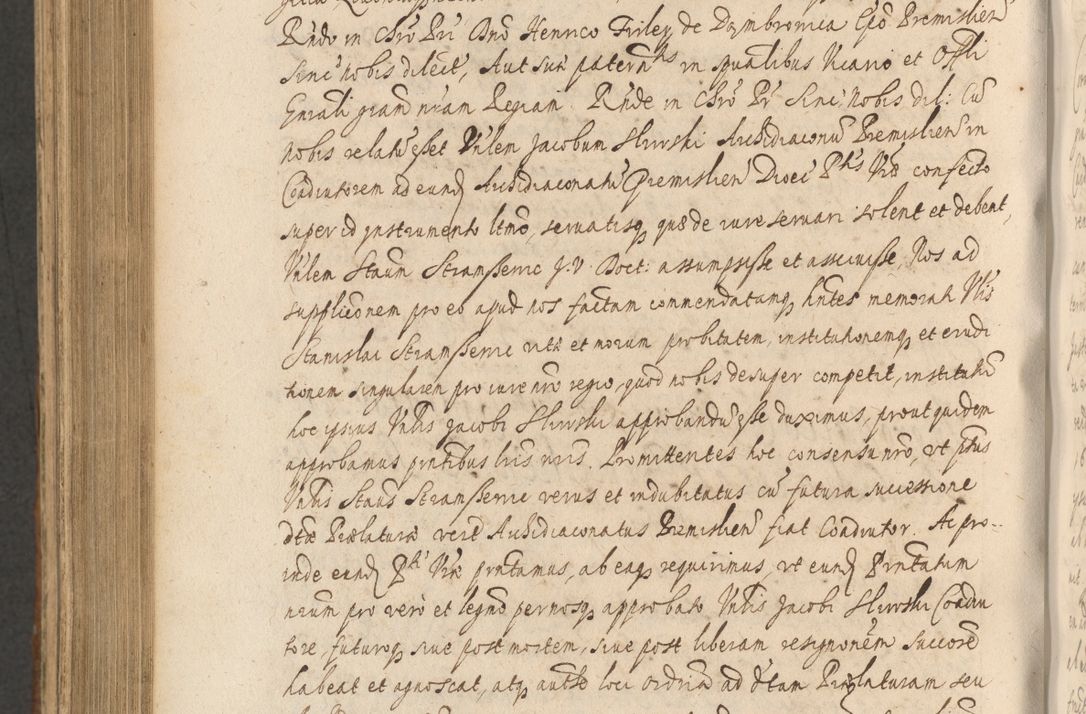 Rndo in Chro Pri Dno Henrico Firley de Dąmbrowica Epo Premislien
Sincė nobis dilect, Aut sux paternts in spualibus Vicario et Offli
Gnrali gram nram Regiam. Rnde in Chro Pr Sinc: Nobis dil: Cu
nobis relatu esset Vnlem Jacobum Sliwski Archidiaconu Premislien in
Coadiutorem ad eund Archidiaconatu Premislien Dioec Ptis Vrae confecto
super id instrumento ltmo, seruatisq quae de iure seruari solent et debent,
Vnlem Staum Stramszenic J.V. Doct: assumpsisse et asciuisse, Nos ad
supplicõnem pro eo apud nos factam commendatamq hntes memorati Vlis
Stanislai Stramszenic vitae et morum probitatem, institutionemq et erudi
tionem singularem pro iure nro regio, quod nobis desuper competit, institutu
hoc ipsius Vnlis Jacobi Sliwski approbandu esse duximus, prout quidem
approbamus pntibus lris nris. Promittentes hoc consensu nro, vt ptus
Vnlis Staus Stramszenic verus et indubitatus cu futura successione
dtae Praelaturae vere Archidiaconatus Premislien fiat Coadiutor. Ac pro-
inde eand Ptti Vrae pntamus, ab eaq requirimus, vt eund Pntatum
nrum pro vero et legno per nosq approbato Vnlis Jacobi Sliwski Coadiu
tore, futuroq siue post mortem, siue post liberam resignonem succore
habeat et agnoscat, atq autte loci ordria ad dtam Praelaturam seu